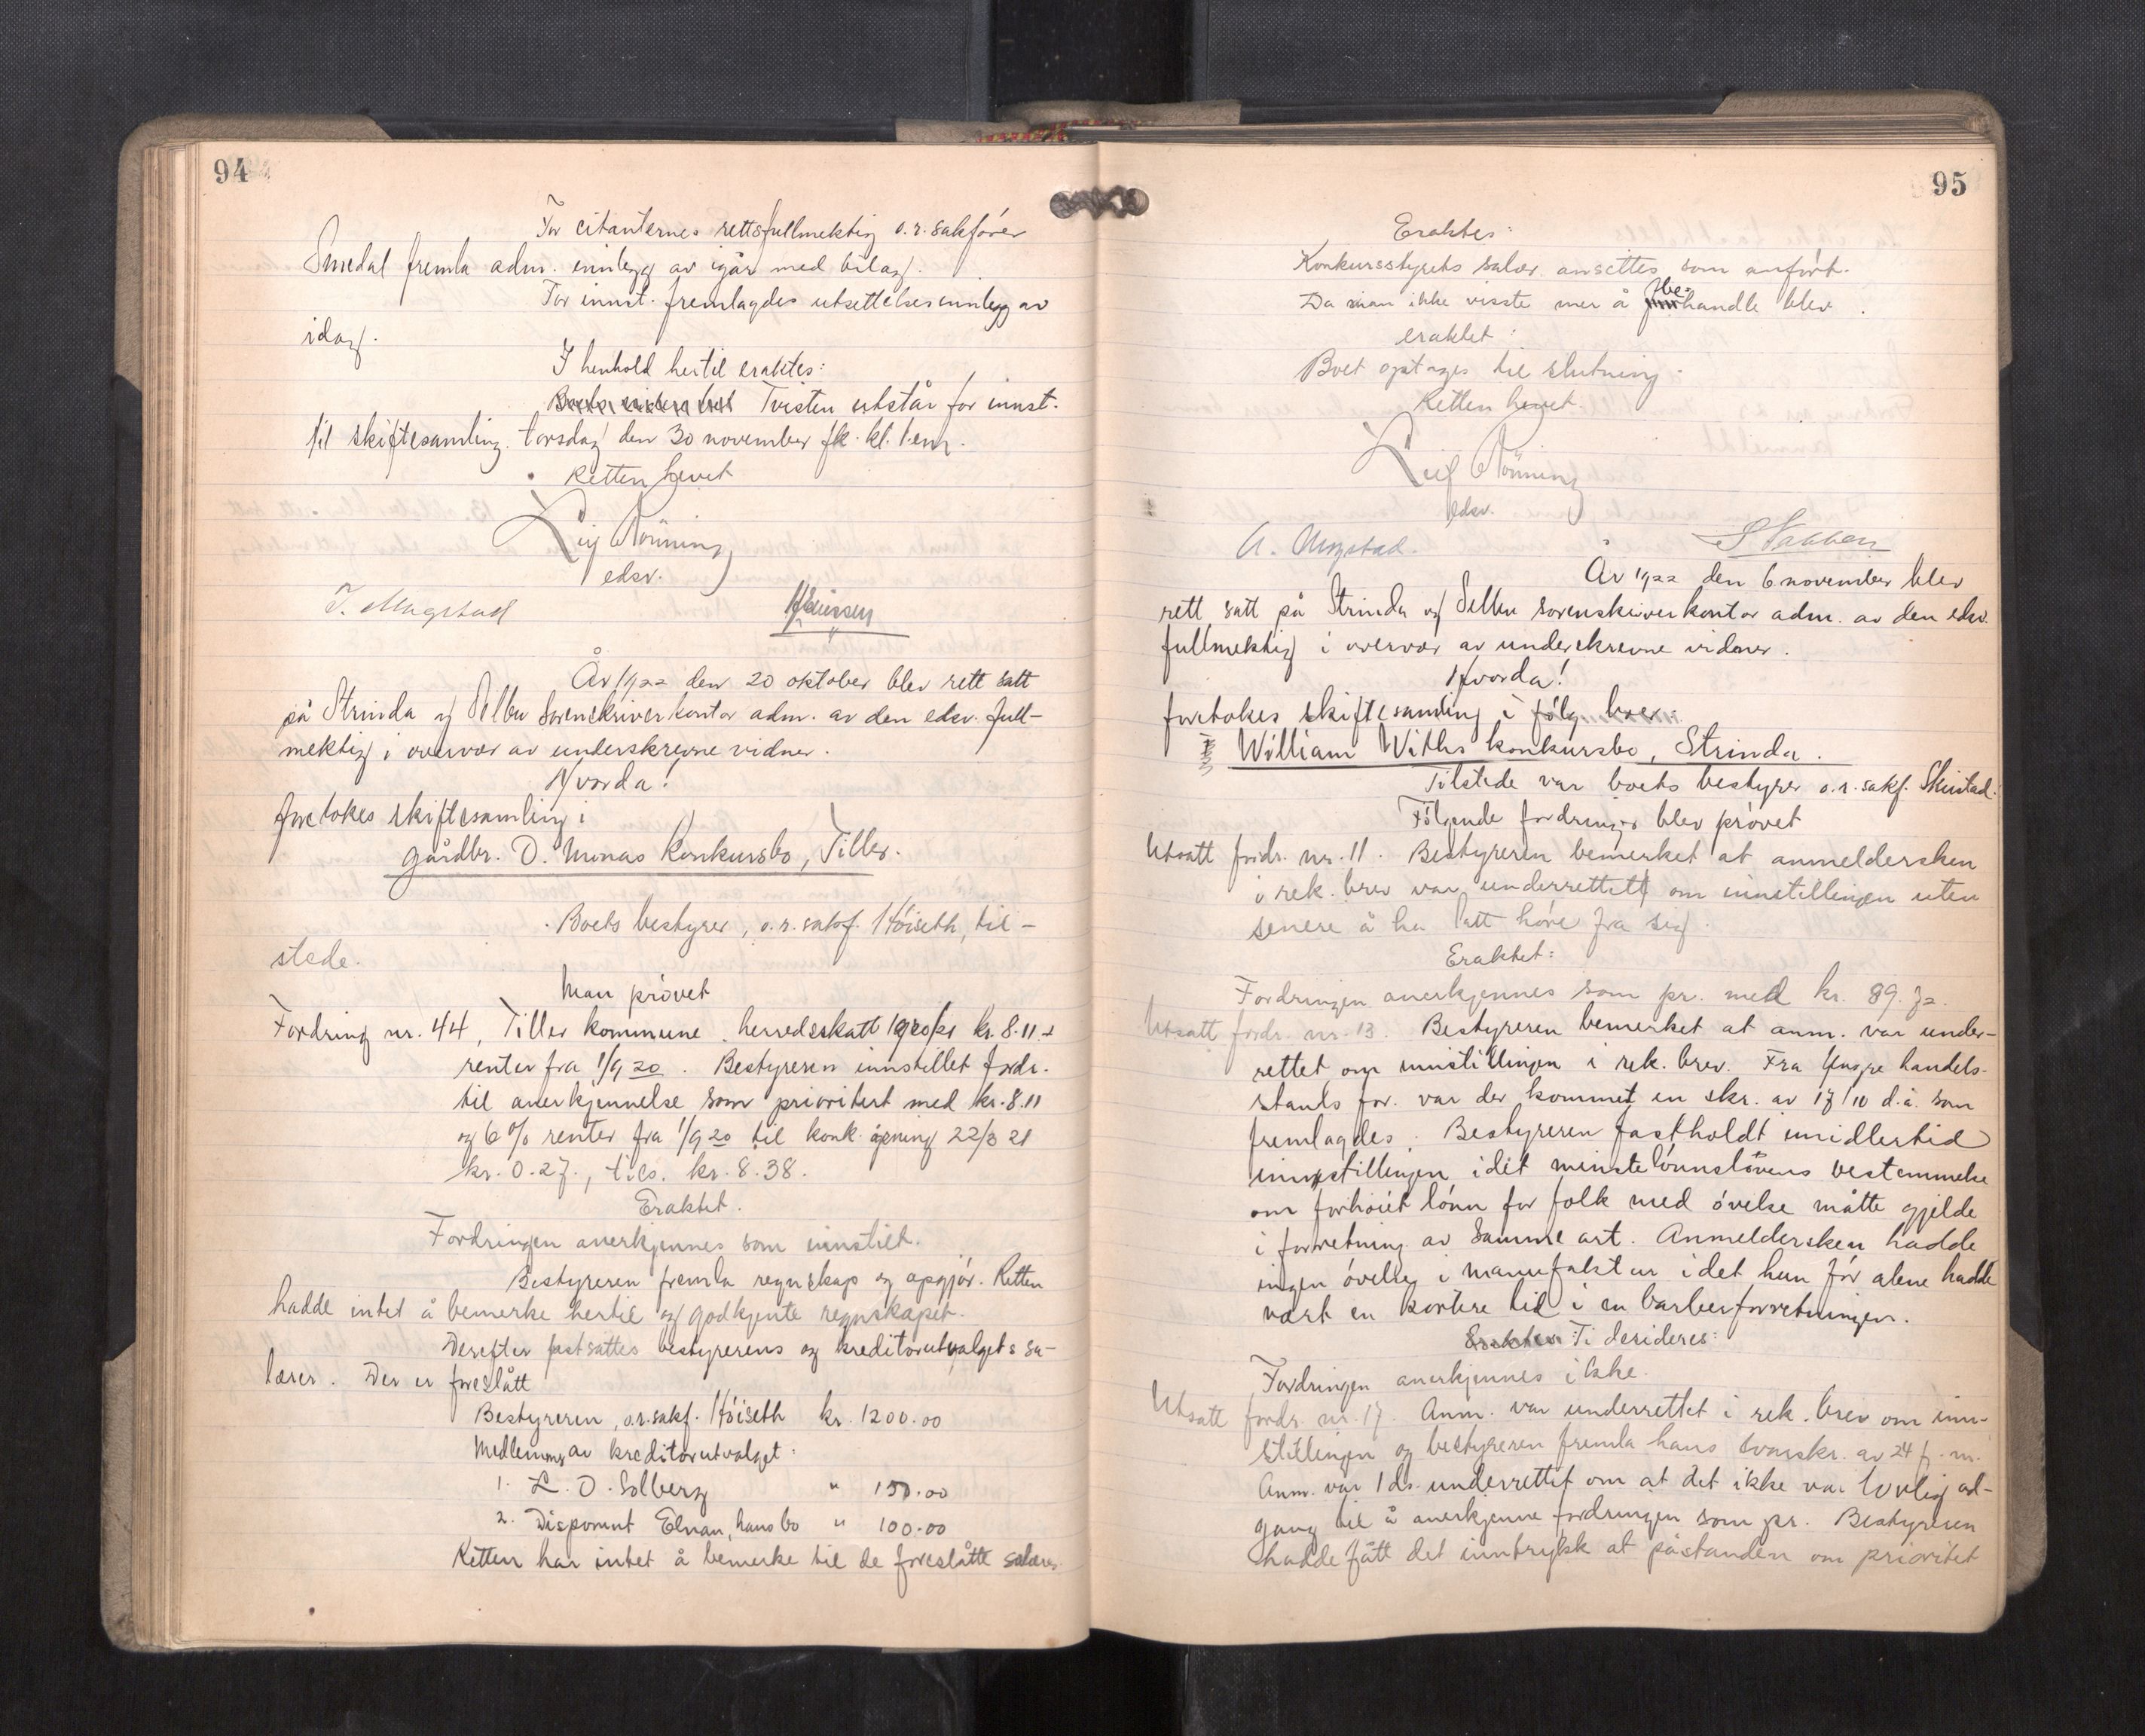 94
For citanternes rettsfullmektig o.r.sakfører
Smedal fremla adm. innlegg av igår med bilag.
For innst. fremlagdes utsettelsesinnlegg av
idag.
I henhold hertil eraktes:
Tvisten utstår for innst.
til skiftesamling torsdag den 30 november fk. kl. 1 em.
Retten hevet
Leif Rönning
edsv.
J. Magstad
År 1922 den 20 oktober blev rett satt
på Strinda og Selbu sorenskriverkontor adm. av den edsv. full-
mektig i overvær av underskrevne vidner.
Hvorda!
foretokes skiftesamling i
gårdbr. O. Monas Konkursbo, Tiller.
Boets bestyrer, o.r.sakf. Höiseth, til-
stede.
Man prövet
Fordring nr. 44, Tiller kommune herredsskatt 1920/21 kr. 8.11 +
renter fra 1/9 20. Bestyreren innstillet fordr.
til anerkjennelse som prioritert med kr. 8.11
og 6 % renter fra 1/9 20 til konk. åpning 22/3 21
kr. 0.27., tils. kr. 8.38.
Eraktet.
Fordringen anerkjennes som innstilt.
Bestyreren fremla regnskap og opgjör. Retten
hadde intet å bemerke hertil og godkjente regnskapet.
Derefter fastsattes bestyrerens og kreditorutvalgets sa-
lærer. Der er foreslått
Bestyreren, o.r.sakf. Höiseth kr. 1200.00
Medlemmer av kreditorutvalget:
1. L. O. Solberg " 150.00
2. Disponent Elnan, hans bo " 100.00
Retten har intet å bemerke til de foreslåtte salærer.
95
Eraktes:
Konkursstyrets salær ansettes som anfört.
Da man ikke visste mer å behandle blev
eraktet:
Boet optages til slutning.
Retten hevet.
Leif Rönning
edsv.
År 1922 den 6 november blev
rett satt på Strinda og Selbu sorenskriverkontor adm. av den edsv.
fullmektig i overvær av underskrevne vidner.
Hvorda!
foretokes skiftesamling i fölg. boer:
William Withs konkursbo, Strinda.
Tilstede var boets bestyrer o.r.sakf. Skustad.
Fölgende fordringer blev prövet
Utsatt fordr. nr. 11. Bestyreren bemerket at anmeldersken
i rek. brev var underrettet om innstillingen uten
senere å ha latt höre fra seg.
Eraktet:
Fordringen anerkjennes som pr. med kr. 89.72.
Utsatt fordr. nr. 13. Bestyreren bemerket at anm. var under-
rettet om innstillingen i rek. brev. Fra Yngre handels-
stands for. var der kommet en skr. av 17/10 d.å. som
fremlagdes. Bestyreren fastholdt imidlertid
innstillingen idet minstelönnslovens bestemmelse
om forhöiet lönn for folk med övelse måtte gjelde
i forretning av samme art. Anmeldersken hadde
ingen övelse i manufaktur idet hun för alene hadde
vært en kortere tid i en barberforretningen.
Erakten Ti desideres:
Fordringen anerkjennes ikke.
Utsatt fordr. nr. 17. Anm. var underrettet i rek. brev om inn-
stillingen og bestyreren fremla hans svarskr. av 24 f. m.
Anm. var 1 ds. underrettet om at det ikke var lovlig ad-
gang til å anerkjenne fordringen som pr. Bestyreren
hadde fått det inntrykk at påstanden om prioritet